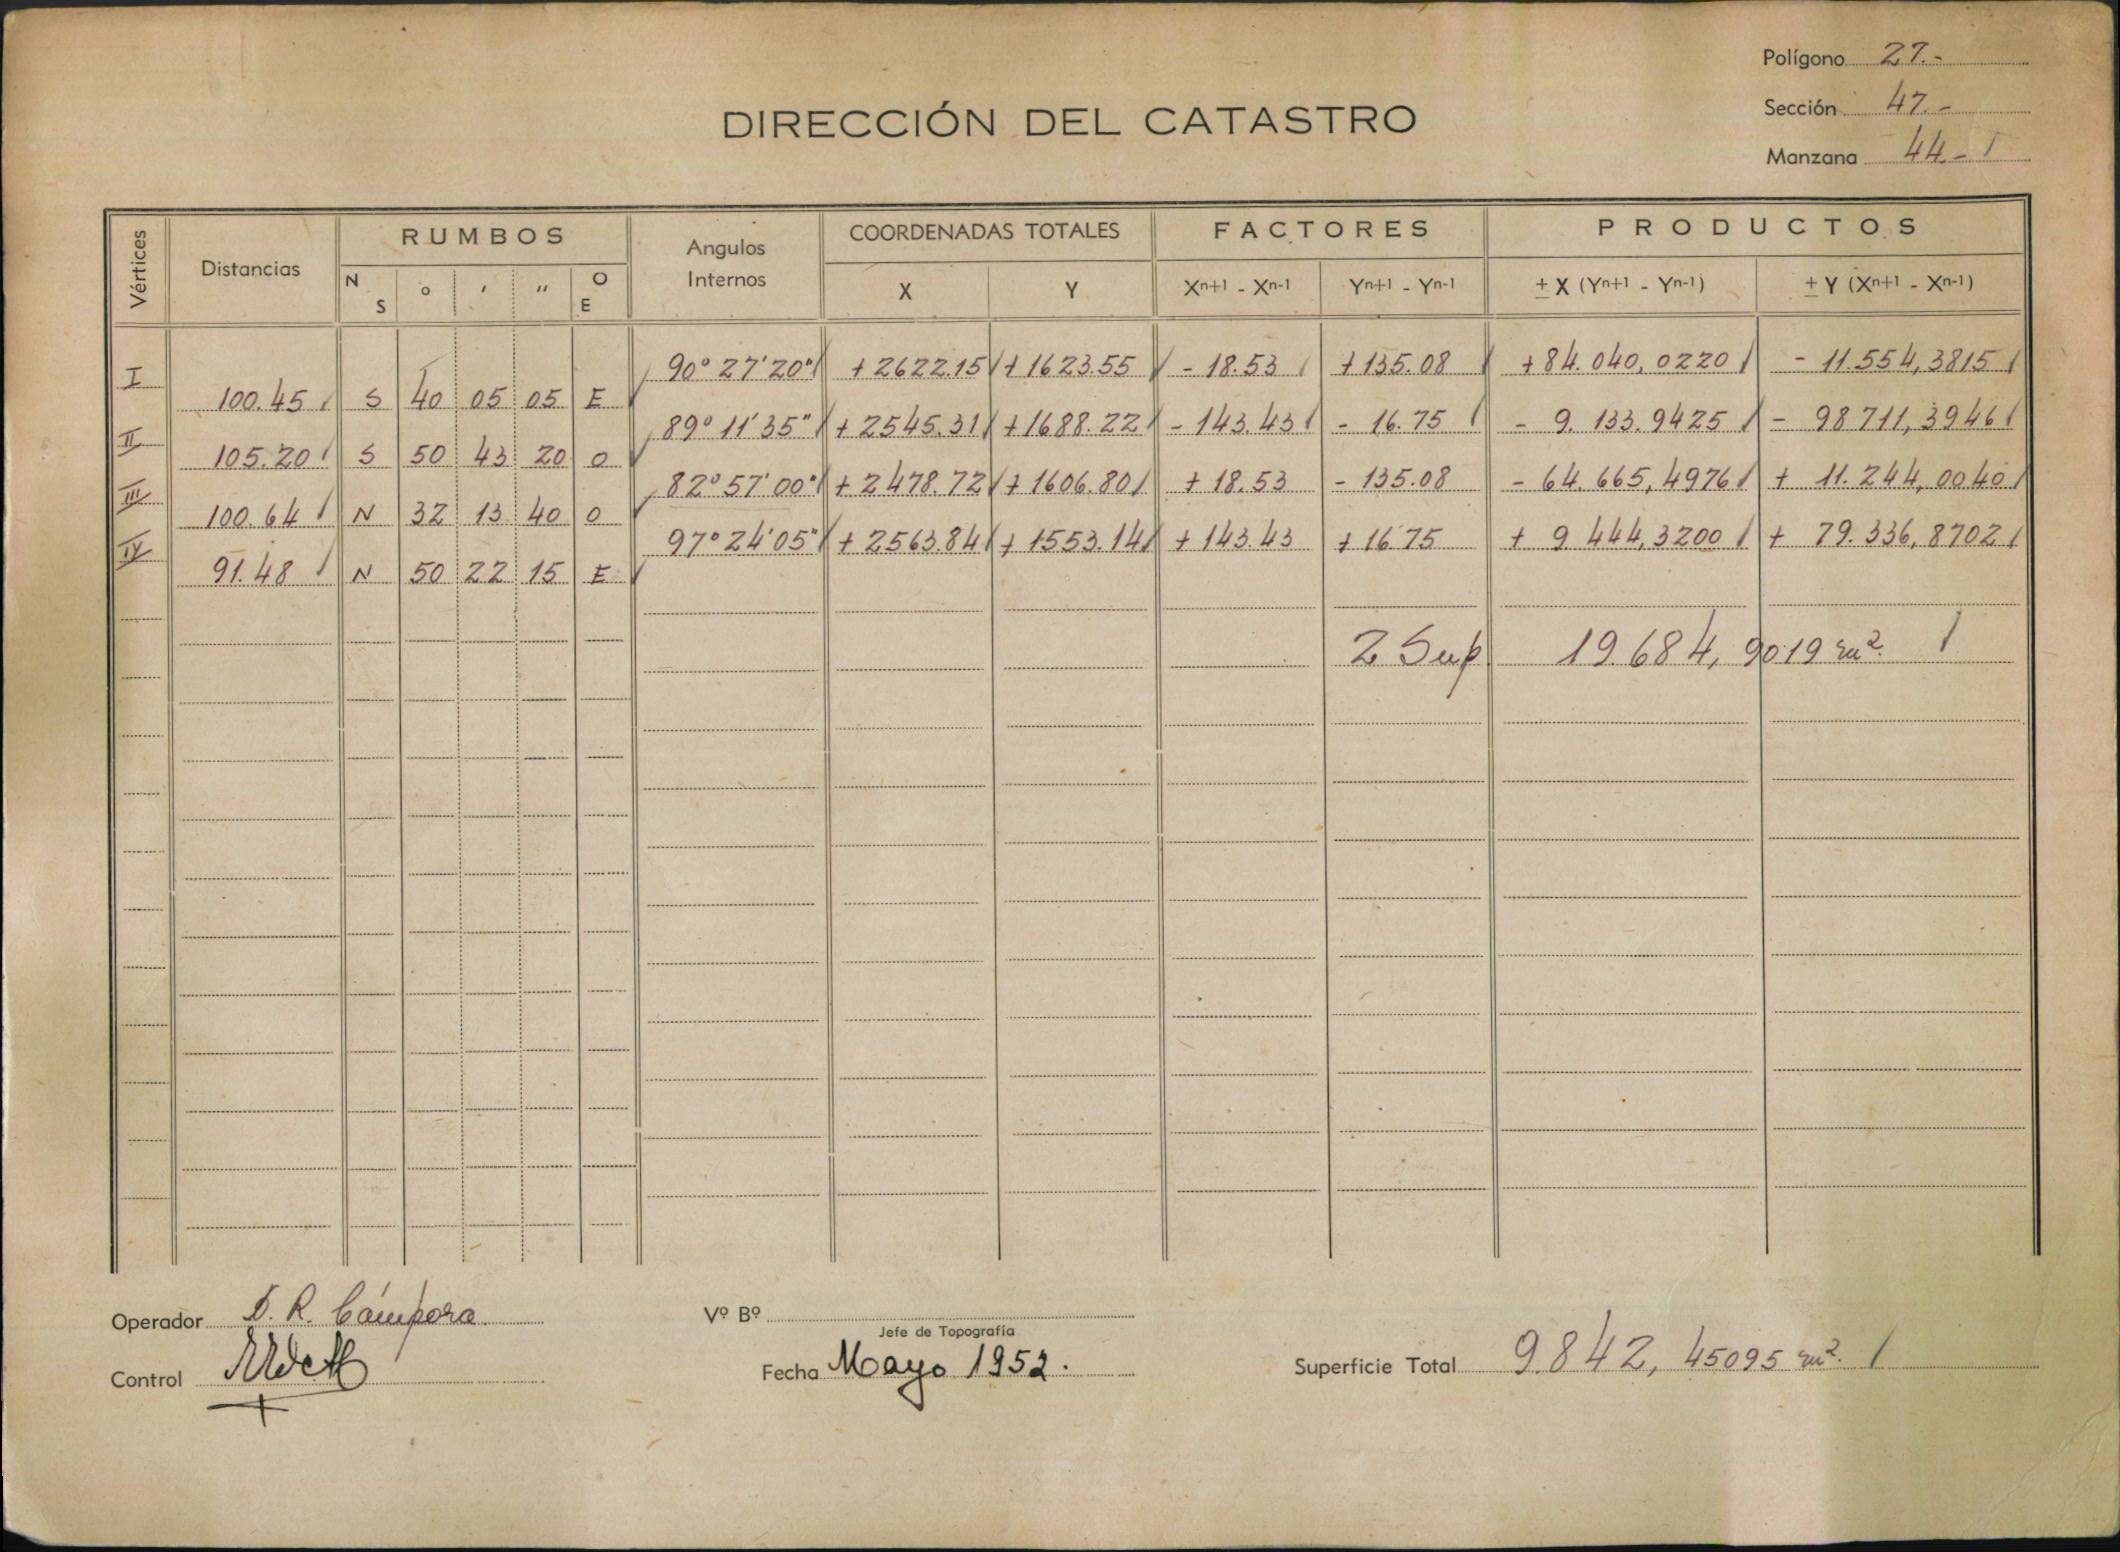 Polígono 27.-
DIRECCIÓN DEL CATASTRO
Sección 47.-
Manzana 44.-
Vértices Distancias RUMBOS Angulos Internos COORDENADAS TOTALES FACTORES PRODUCTOS
N S ° ' " O E X Y Xn+1 - Xn-1 Yn+1 - Yn-1 ± X (Yn+1 - Yn-1) ± Y (Xn+1 - Xn-1)
I 90° 27' 20" +2622.15 +1623.55 - 18.53 +135.08 +84.040,0220 - 11.554,3815
100.45 S 40 05 05 E
II 89° 11' 35" +2545.31 +1688.22 - 143.43 - 16.75 - 9.133.9425 - 98711,3946
105.20 S 50 43 20 O
III 82° 57' 00" +2478.72 +1606.80 +18.53 - 135.08 - 64.665,4976 + 11.244,0040
100.64 N 32 13 40 O
IV 97° 24' 05" +2563.84 +1553.14 +143.43 +16.75 + 9444,3200 + 79.336,8702
91.48 N 50 22 15 E
2 Sup 19.684,9019 m².
Operador D. R. Cámpora
Vº Bº
Jefe de Topografía
Control
Fecha Mayo 1952.
Superficie Total 9.842,45095 m².